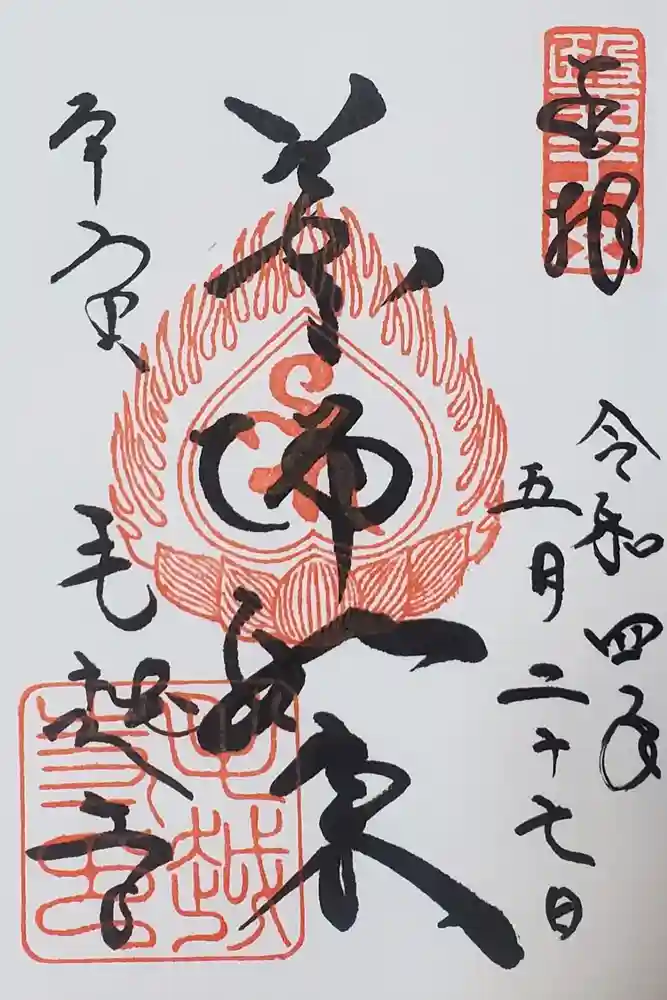 奉拝
令和四年
五月二十七日
薬師如来
平泉
毛越寺
毛越
寺印